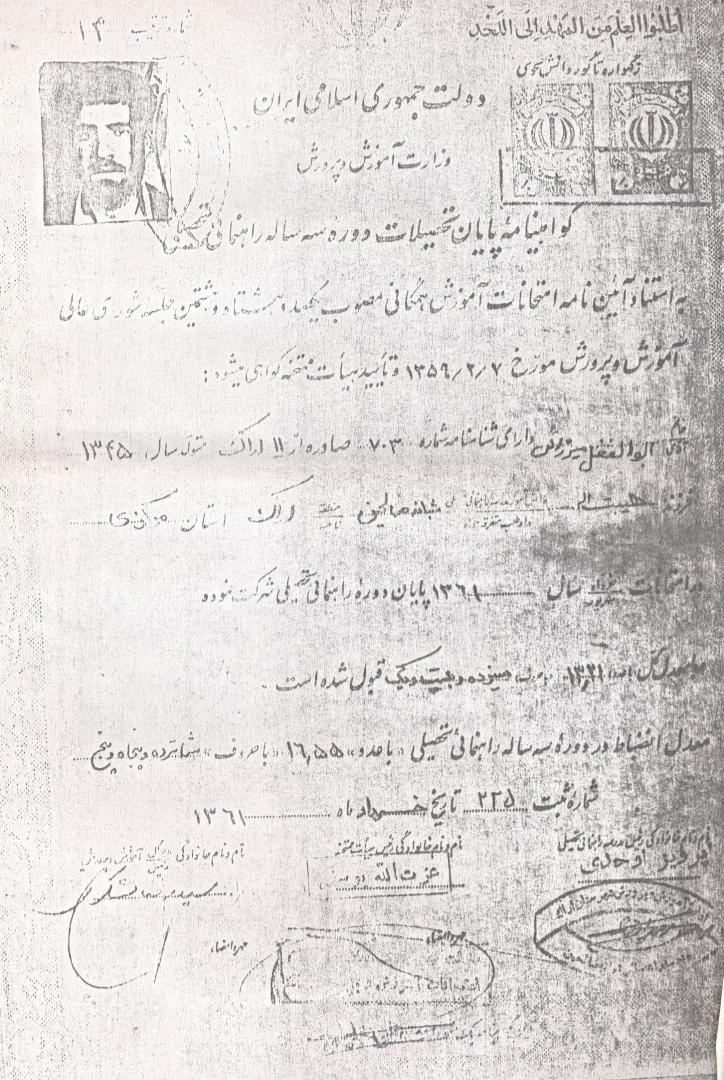 اطلبوا العلم من المهد الی اللحد
زگهواره تا گور دانش بجوی
شماره ترتیب ۱۳
دولت جمهوری اسلامی ایران
وزارت آموزش و پرورش
گواهینامهٔ پایان تحصیلات دورهٔ سه ساله راهنمائی تحصیلی
به استناد آئین نامه امتحانات آموزش همگانی مصوب یکصد و هشتاد و هشتمین جلسه شورای عالی
آموزش و پرورش مورخ ۱۳۵۹/۲/۷ و تأیید هیأت ممتحنه گواهی میشود:
خانم آقای ابوالفضل دارای شناسنامه شماره ۷۰۳ صادره از ۱۱ اراک متولد سال ۱۳۴۵
فرزند اراک استان مرکزی
در امتحانات خرداد سال ۱۳۶۱ پایان دورهٔ راهنمائی تحصیلی شرکت نموده
و با معدل کل ۱۳٫۲۱ سیزده و بیست و یک قبول شده است
معدل انضباط در دورهٔ سه ساله راهنمائی تحصیلی «با عدد» ۱۶٫۵۵ «با حروف» شانزده و پنجاه و پنج
شمارهٔ ثبت ۲۲۵ تاریخ خرداد ماه ۱۳۶۱
نام و نام خانوادگی رئیس مدرسه راهنمائی تحصیلی
اوحدی
نام و نام خانوادگی رئیس هیأت ممتحنه
عزت الله
نام و نام خانوادگی آموزش و پرورش
مهر و امضاء
مهر و امضاء